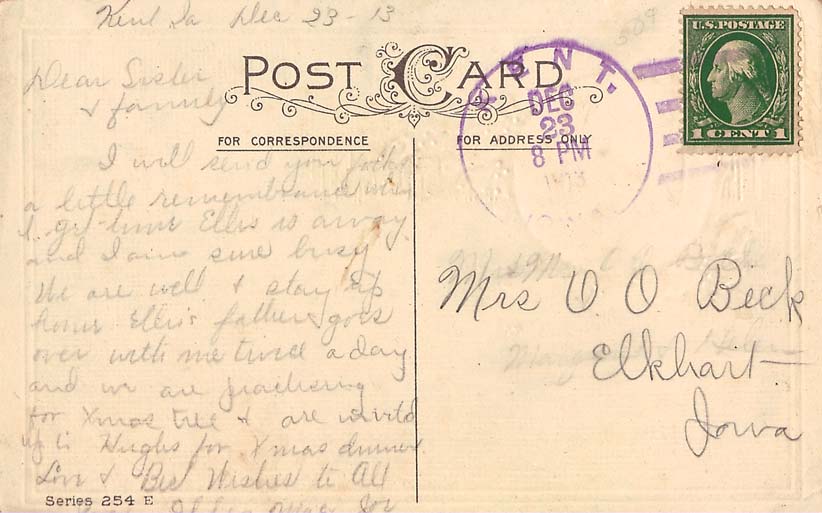 Kent Ia Dec 23 - 13
509
POST CARD
U.S. POSTAGE
1 CENT 1
KENT.
DEC
23
8 PM
1913
IOWA
FOR CORRESPONDENCE
FOR ADDRESS ONLY
Dear Sister
& family
I will send you folks
a little remembrance when
I get time Ellis is away
and I am sure busy
We are well & stay up
home Ellis father goes
over with me twice a day
and we are practicing
for Xmas tree & are invited
up to Hughs for Xmas dinner
Love & Best Wishes to All
Mrs V O Beck
Elkhart
Iowa
Series 254 E